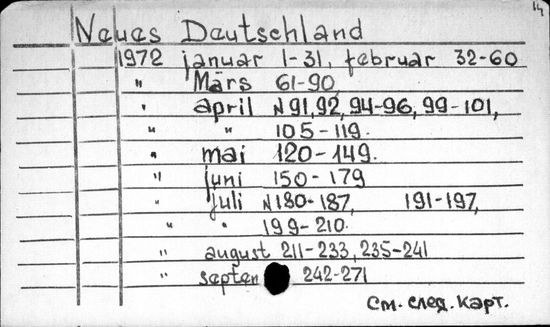 14
Neues Deutschland
1972 januar 1-31, februar 32-60
" Märs 61-90
" april N 91,92, 94-96, 99-101,
" " 105-119.
" mai 120-149.
" juni 150-179
" juli N 180-187, 191-197,
" " 199-210.
" august 211-233, 235-241
" septem 242-271
См. след. карт.